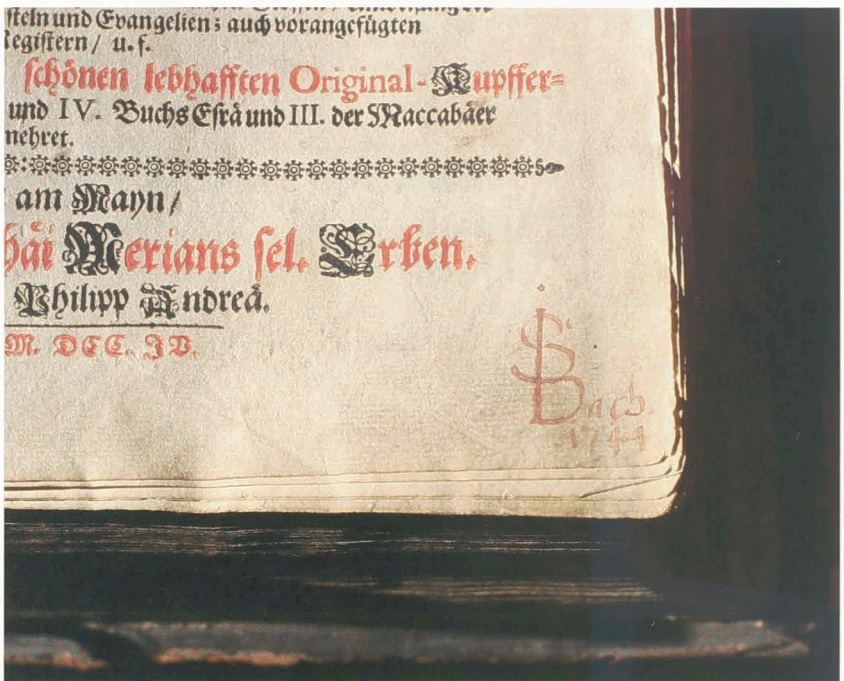 steln und Evangelien; auch vorangefügten
Registern / u. f.
schönen lebhafften Original-Kupffer-
und IV. Buchs Esrä und III. der Maccabäer
mehret.
am Mayn /
Merians sel. Erben.
Philipp Andreä.
M. DCC. IV.
JSBach.
1744